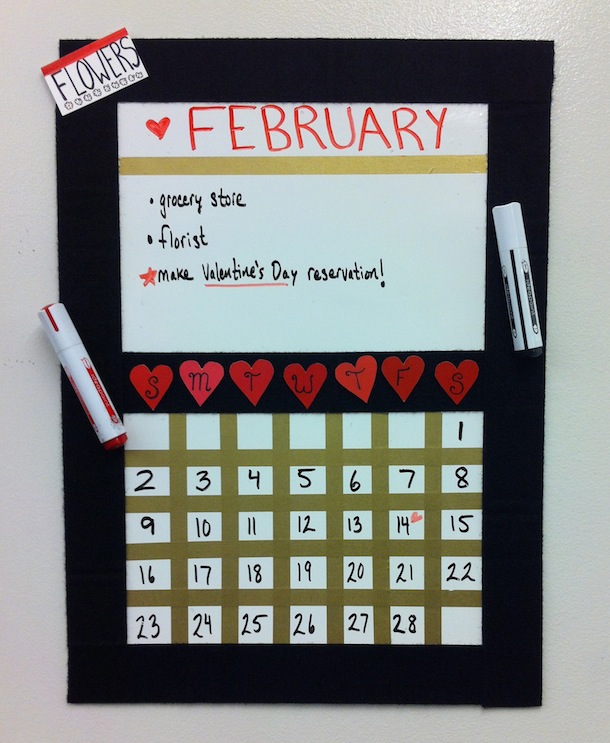 FLOWERS
FEBRUARY
• grocery store
• florist
make Valentine's Day reservation!
S M T W T F S
1
2 3 4 5 6 7 8
9 10 11 12 13 14 15
16 17 18 19 20 21 22
23 24 25 26 27 28